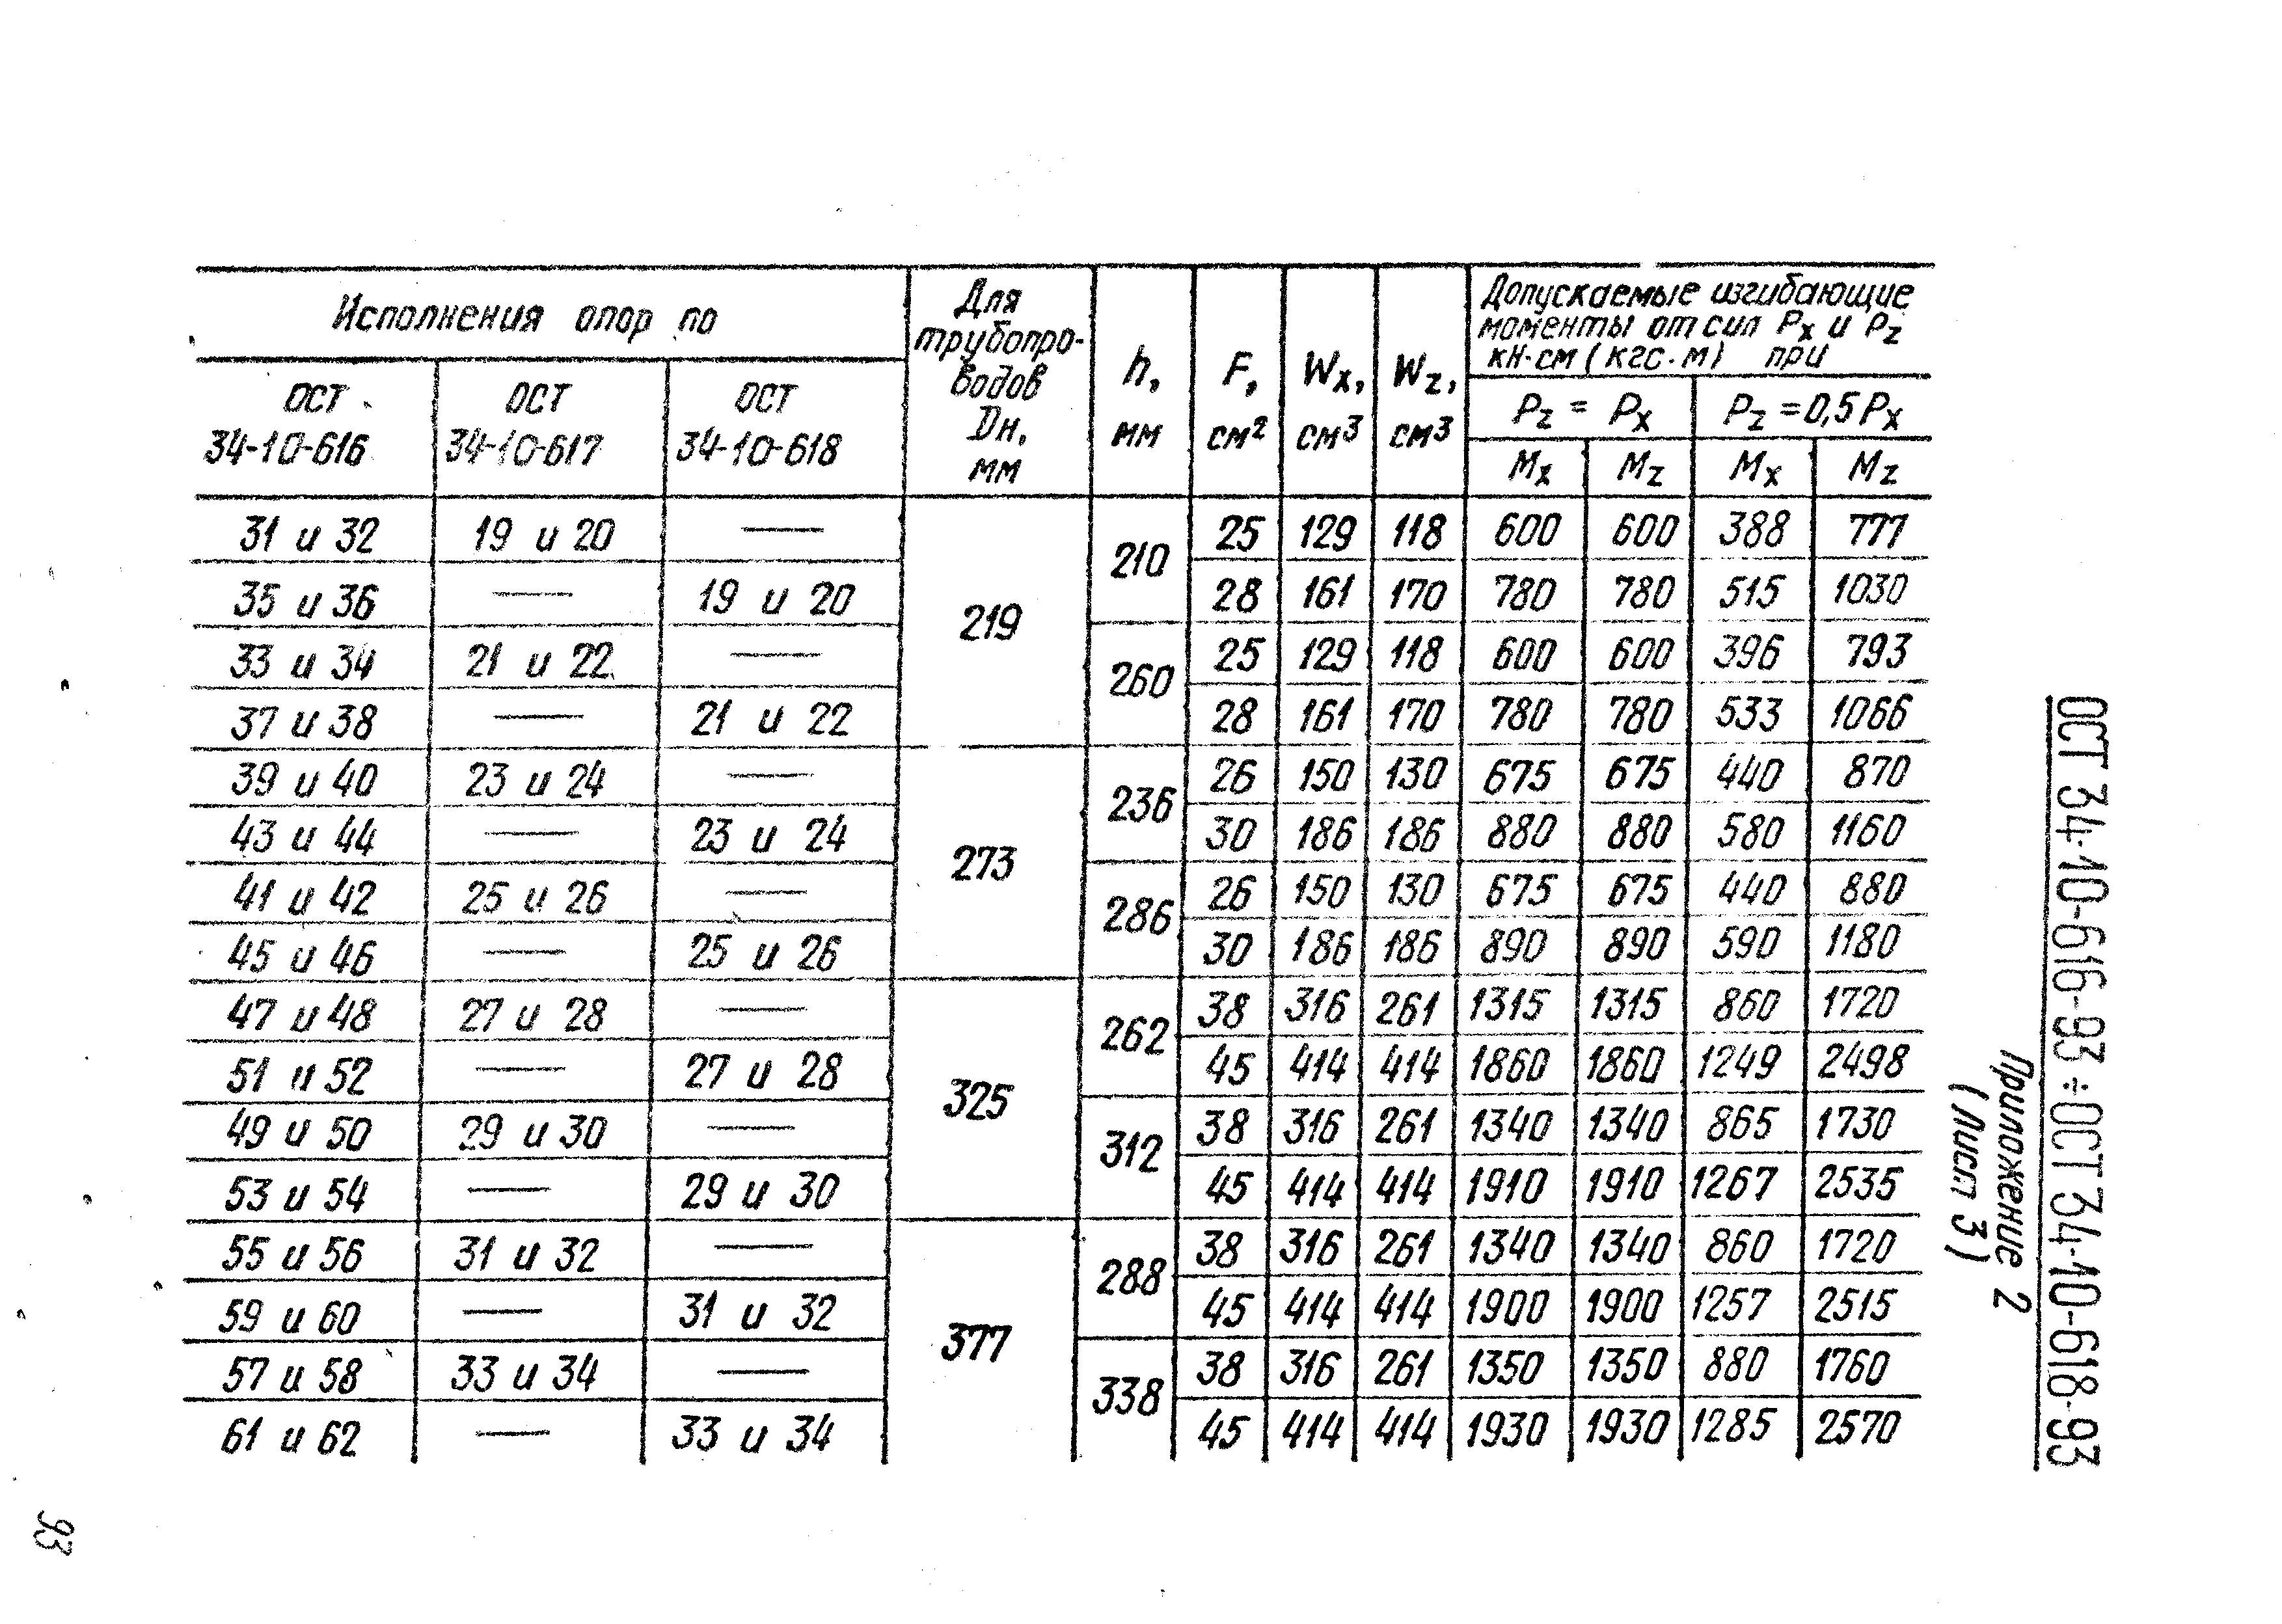 ОСТ 34-10-616-93÷ОСТ 34-10-618-93
Приложение 2
(Лист 3)
Исполнения опор по
ОСТ 34-10-616
ОСТ 34-10-617
ОСТ 34-10-618
Для трубопро-
водов
Dн,
мм
h,
мм
F,
см²
Wx,
см³
Wz,
см³
Допускаемые изгибающие
моменты от сил Px и Pz
кН·см (кгс·м) при
Pz = Px
Pz = 0,5 Px
Mx Mz Mx Mz
31 и 32 19 и 20 — 219 210 25 129 118 600 600 388 777
35 и 36 — 19 и 20 28 161 170 780 780 515 1030
33 и 34 21 и 22 — 260 25 129 118 600 600 396 793
37 и 38 — 21 и 22 28 161 170 780 780 533 1066
39 и 40 23 и 24 — 273 236 26 150 130 675 675 440 870
43 и 44 — 23 и 24 30 186 186 880 880 580 1160
41 и 42 25 и 26 — 286 26 150 130 675 675 440 880
45 и 46 — 25 и 26 30 186 186 890 890 590 1180
47 и 48 27 и 28 — 325 262 38 316 261 1315 1315 860 1720
51 и 52 — 27 и 28 45 414 414 1860 1860 1249 2498
49 и 50 29 и 30 — 312 38 316 261 1340 1340 865 1730
53 и 54 — 29 и 30 45 414 414 1910 1910 1267 2535
55 и 56 31 и 32 — 377 288 38 316 261 1340 1340 860 1720
59 и 60 — 31 и 32 45 414 414 1900 1900 1257 2515
57 и 58 33 и 34 — 338 38 316 261 1350 1350 880 1760
61 и 62 — 33 и 34 45 414 414 1930 1930 1285 2570
93